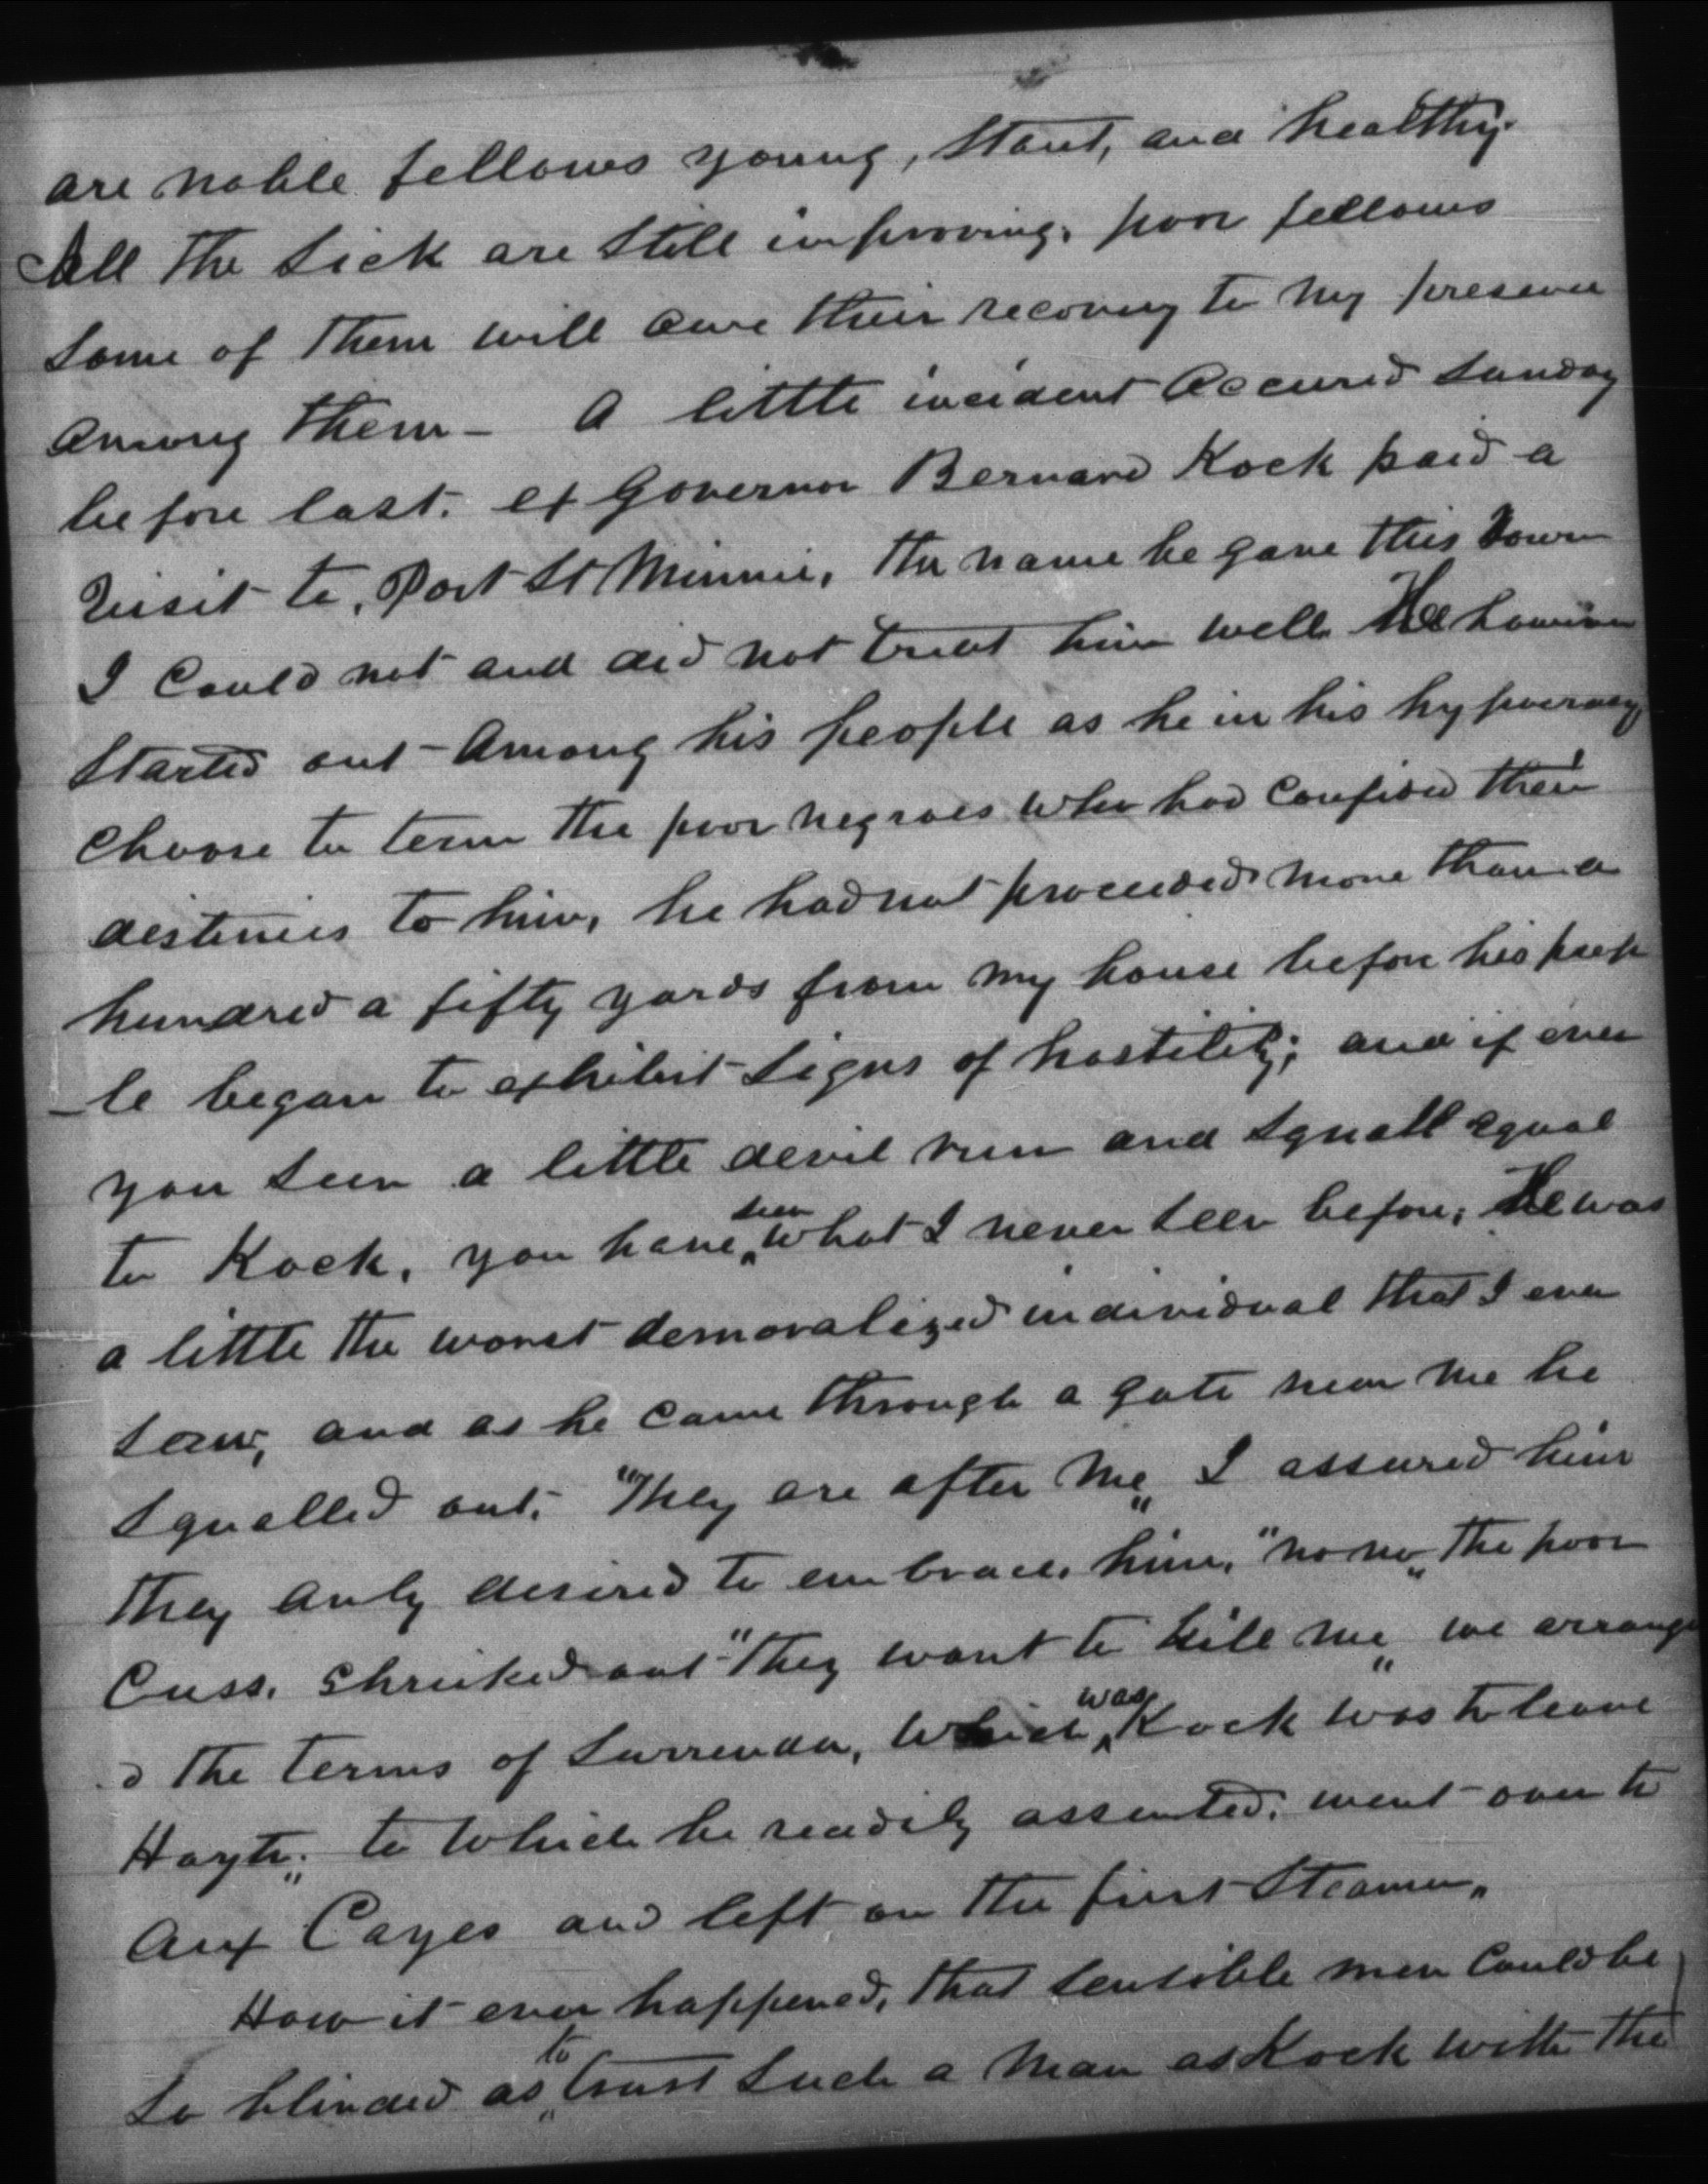 are noble fellows young, stout, and healthy.
All the sick are still improving. poor fellows
some of them will owe their recovery to my presence
among them — A little incident occured Sunday
before last. ex Governor Bernard Kock paid a
visit to, Port St Minnie, the name he gave this Town
I could not and did not treat him well. He however
started out among his people as he in his hypocracy,
choose to term the poor negroes who had confided their
destinies to him, he had not proceeded more than a
hundred a fifty yards from my house before his peop
-le began to exhibit signs of hostility; and if ever
you seen a little devil run and squall equal
to Kock, you have seen what I never seen before; He was
a little the worst demoralized individual that I ever
saw, and as he came through a gate near me he
squalled out. "They are after me" I assured him
they only desired to embrace him, "no no" the poor
cuss. shrieked out "They want to kill me" we arrange
d the terms of surrender, which was Kock was to leave
Hayti. to which he readily assented. went over to
Aux Cayes and left on the first steamer.
How it ever happened, that sensible men could be
so blinded as to trust such a man as Kock with the